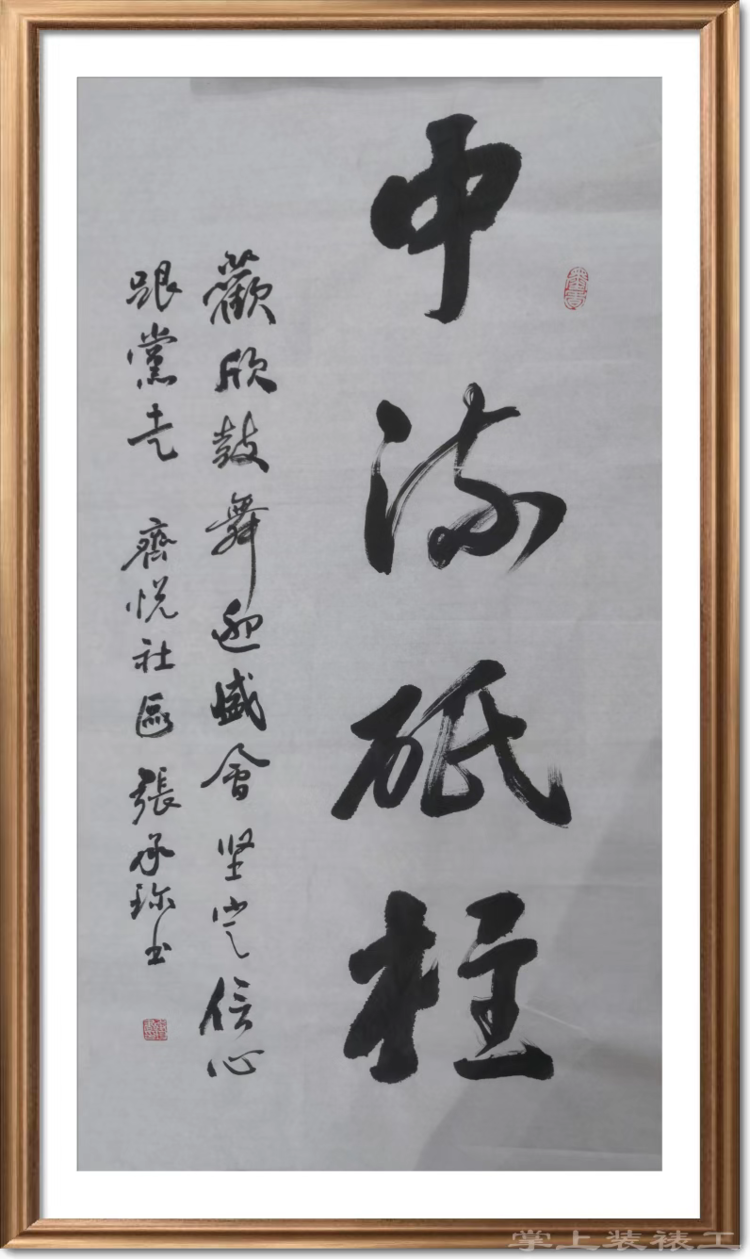 中流砥柱
歡欣鼓舞迎盛會坚定信心
跟黨走 齊悦社區 張承珎书
掌上装裱工